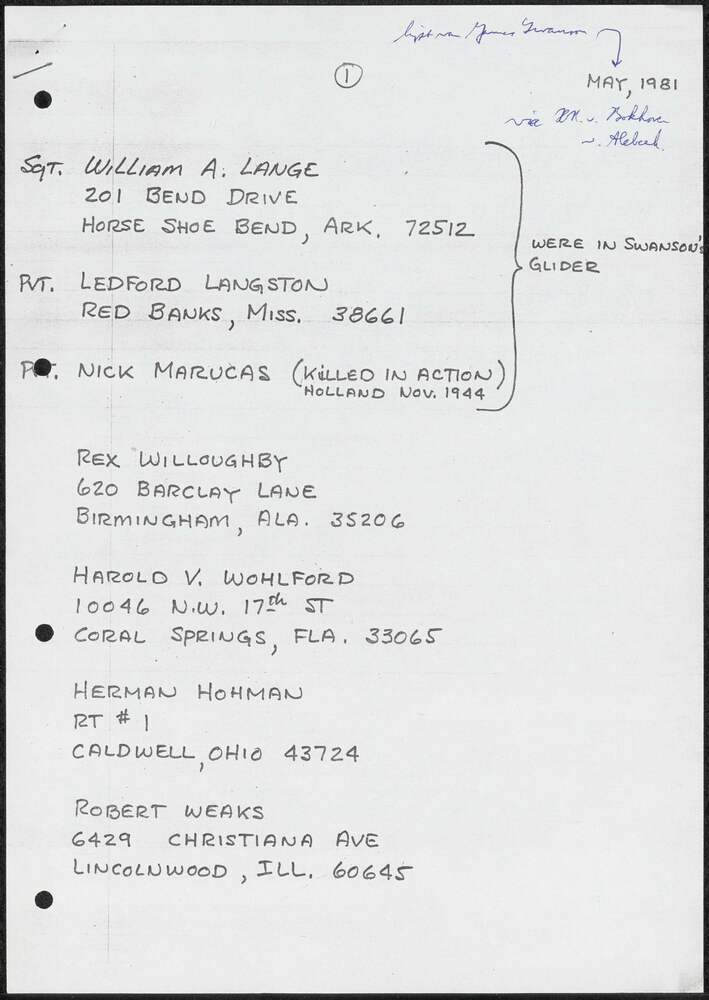 lijst van James Swanson
1
MAY, 1981
via DR. v. Bokhoven
v. Alebeek.
SGT. WILLIAM A. LANGE
201 BEND DRIVE
HORSE SHOE BEND, ARK. 72512
PVT. LEDFORD LANGSTON
RED BANKS, MISS. 38661
WERE IN SWANSON'S
GLIDER
NICK MARUCAS (KILLED IN ACTION)
HOLLAND NOV. 1944
REX WILLOUGHBY
620 BARCLAY LANE
BIRMINGHAM, ALA. 35206
HAROLD V. WOHLFORD
10046 N.W. 17th ST
CORAL SPRINGS, FLA. 33065
HERMAN HOHMAN
RT # 1
CALDWELL, OHIO 43724
ROBERT WEAKS
6429 CHRISTIANA AVE
LINCOLNWOOD, ILL. 60645